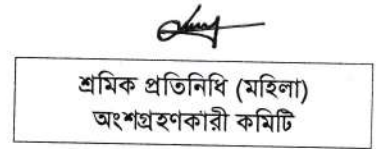 শ্রমিক প্রতিনিধি (মহিলা)
অংশগ্রহণকারী কমিটি